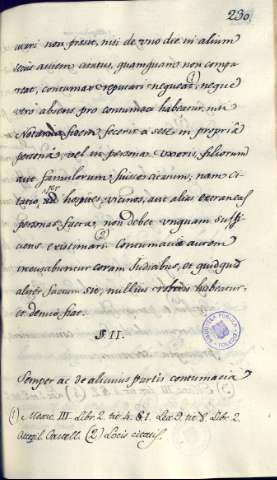 230
cari non possit, nisi de uno die in alium
citatus, quamquam non compa
reat, contumax reputari nequeat (1), neque
vero absens pro contumaci habeatur, nisi
Notarius fidem fecerit a sese in propria
persona, vel in persona uxoris, filiorum
aut famulorum fuisse citatum; nam ci
tatio, per hospites, vicinos, aut alias extraneas
personas facta non debet unquam suffi
ciens existimari (2) Contumaciæ autem
incusabuntur coram Iudicibus, et quidquid
aliter factum sit, nullius roboris habeatur,
et denuo fiat.
§ II.
Semper ac de alicuius partis contumacia
(1) Marc. III. Libr. 2. tit. 4. § 1. Lex 9. tit. 8. Libr. 2.
Castell. (2) Locis citatis.